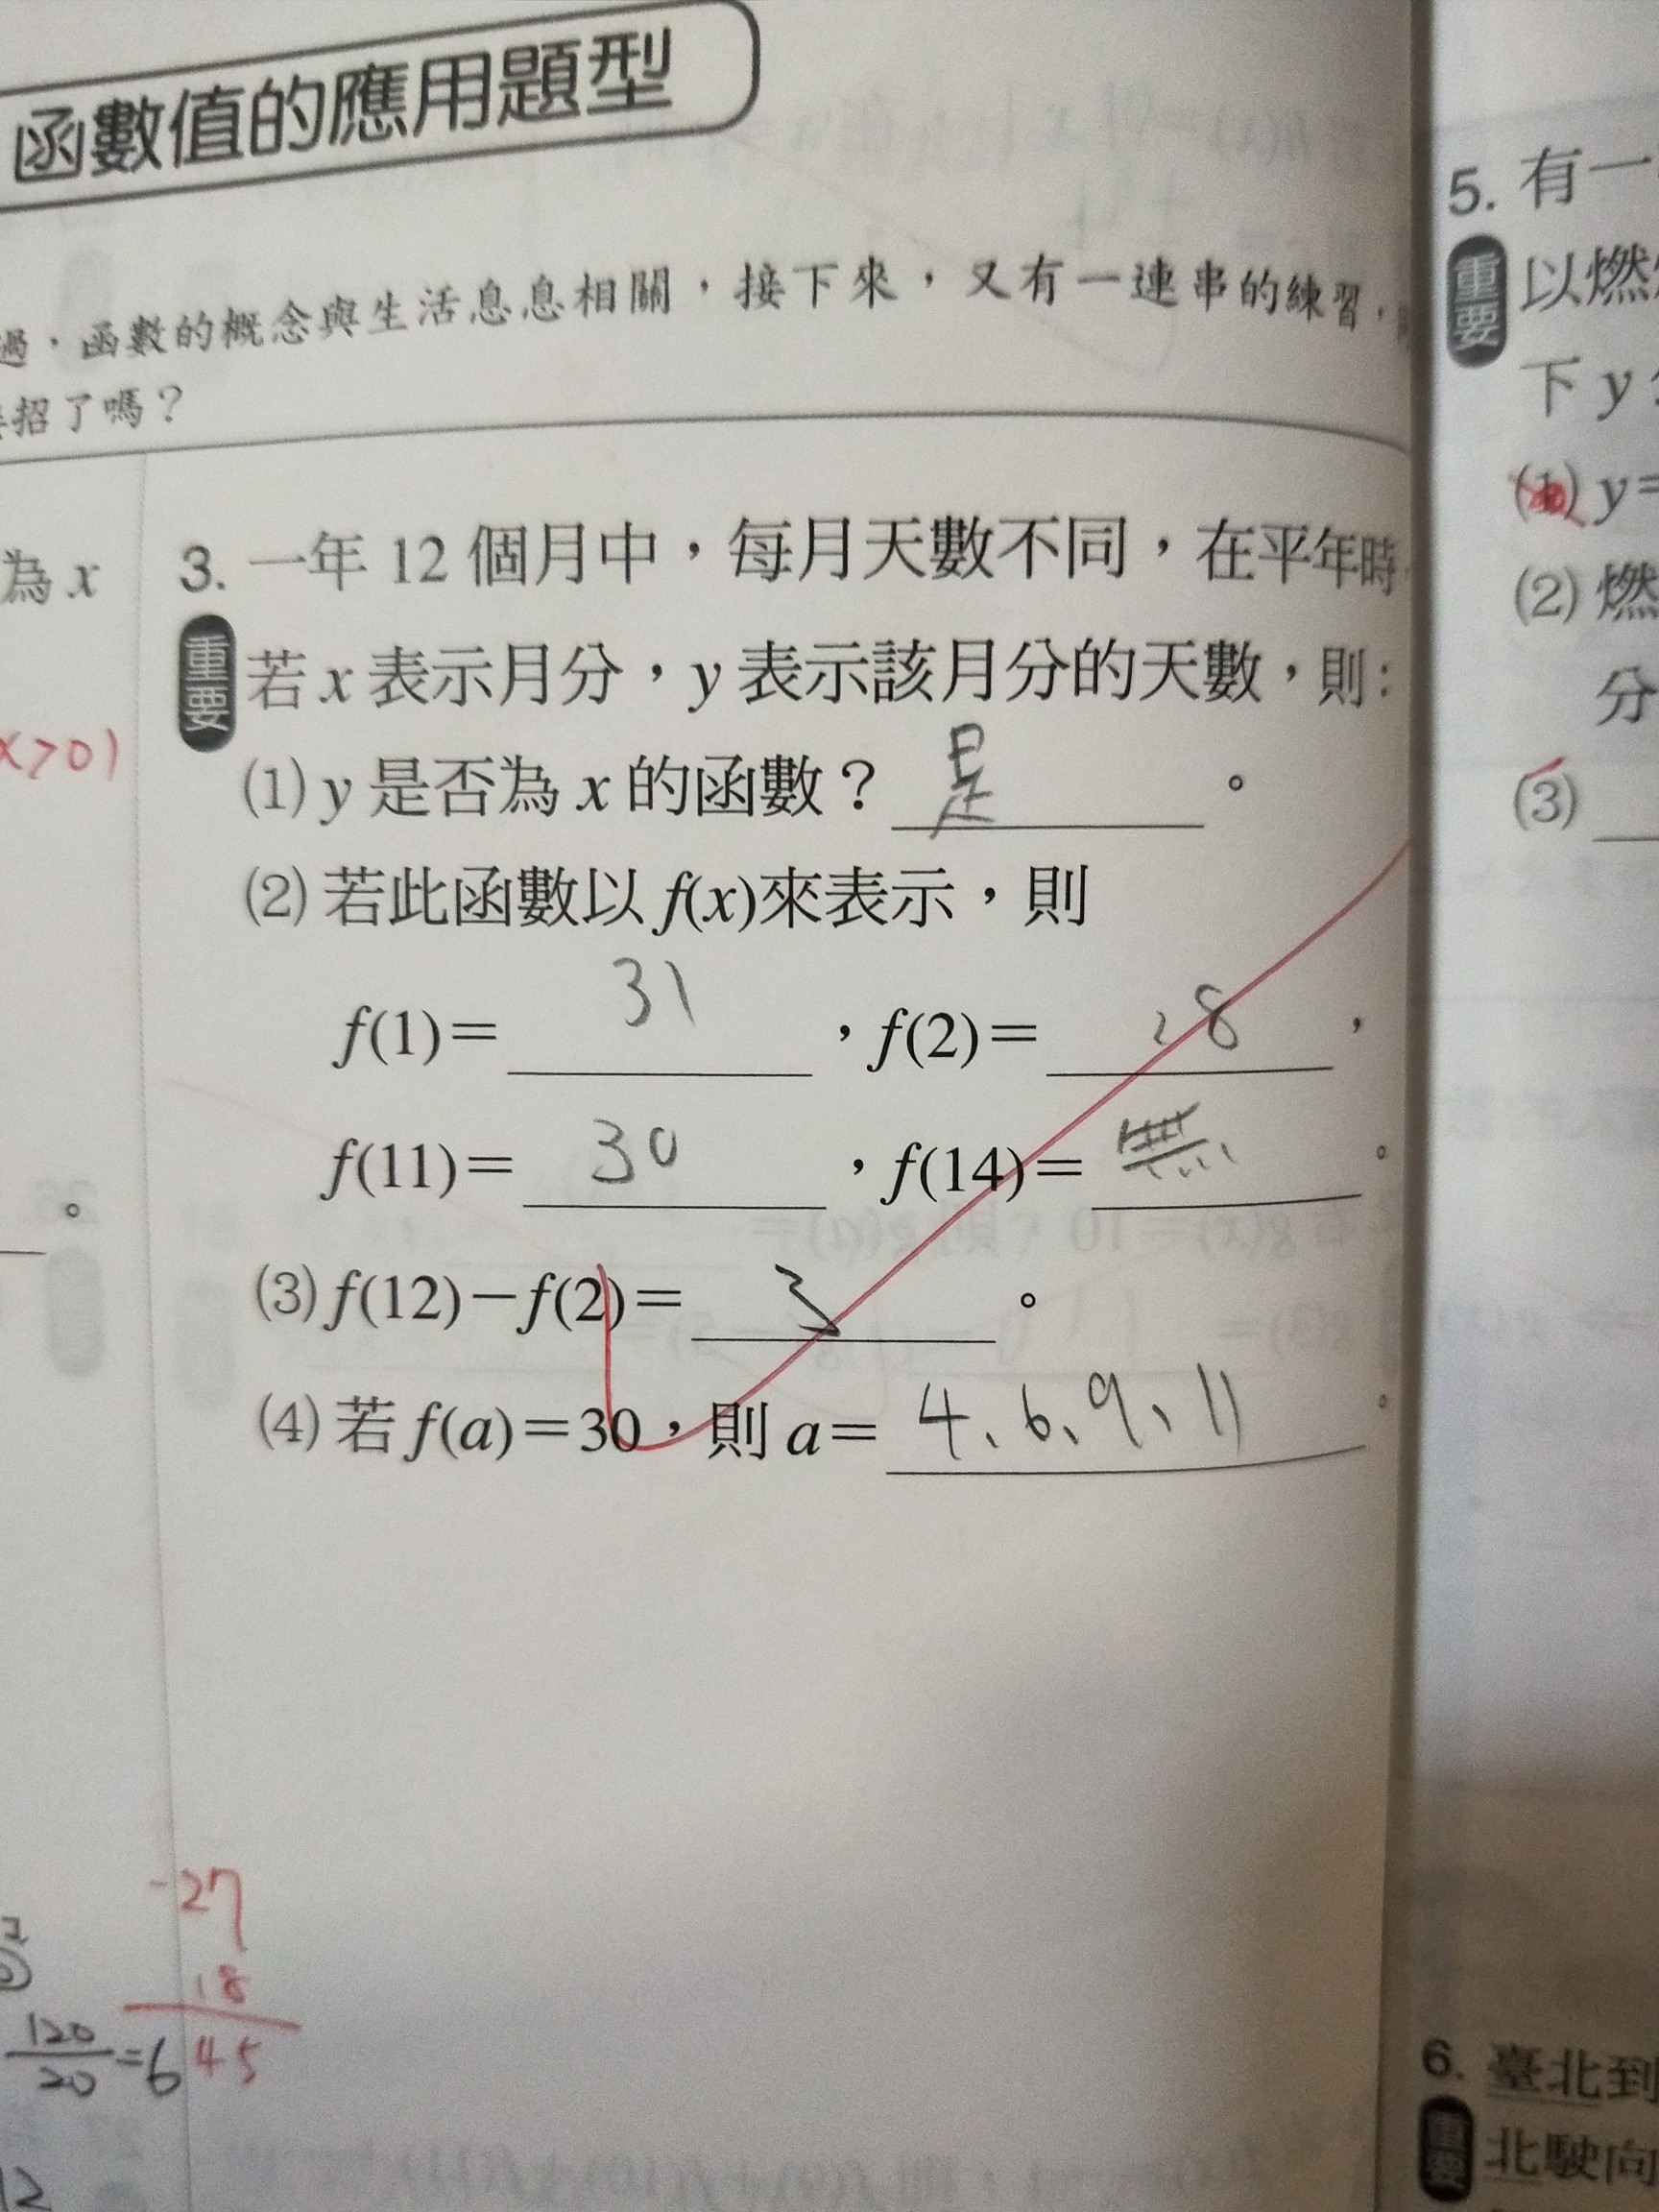 函數值的應用題型
過，函數的概念與生活息息相關，接下來，又有一連串的練習，
招了嗎？
為 x
x>0)
。
3. 一年 12 個月中，每月天數不同，在平年時，
重要
若 x 表示月分，y 表示該月分的天數，則：
(1) y 是否為 x 的函數？ 是 。
(2) 若此函數以 f(x)來表示，則
f(1)= 31 ，f(2)= 28 ，
f(11)= 30 ，f(14)= 無 。
(3) f(12)－f(2)= 3 。
(4) 若 f(a)=30，則 a= 4、6、9、11 。
-27
18
45
120/20 =6
12
5. 有一
重要
以燃
下 y
(1) y=
(2) 燃
分
(3)
6. 臺北到
重要
北駛向